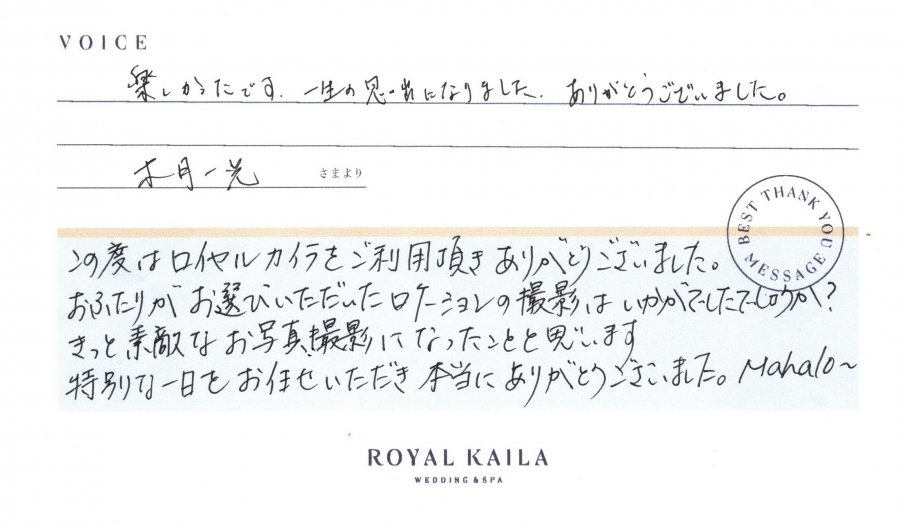 VOICE
楽しかったです. 一生の思い出になりました. ありがとうございました。
木月一光 さまより
BEST THANK YOU MESSAGE
この度はロイヤルカイラをご利用頂きありがとうございました。
おふたりがお選びいただいたロケーションの撮影はいかがでしたでしょうか?
きっと素敵なお写真撮影になったことと思います
特別な一日をお任せいただき本当にありがとうございました。Mahalo~
ROYAL KAILA
WEDDING & SPA